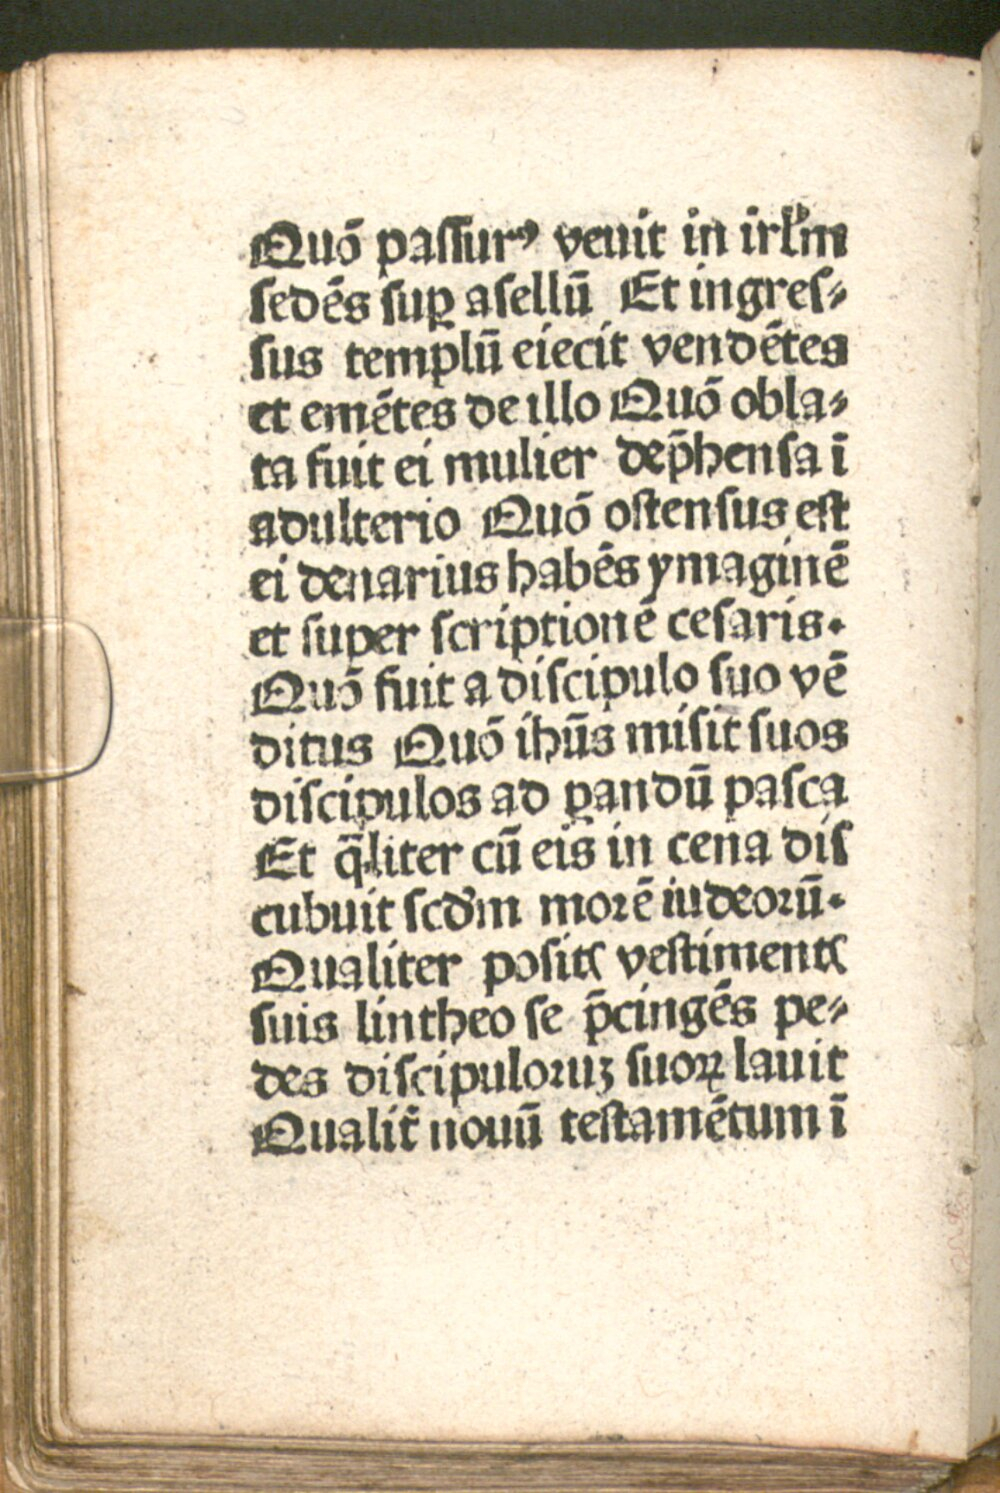 Quō paſſurꝰ venit in irl̄m
ſedēs ſuꝑ aſellū Et ingreſ⸗
ſus templū eiecit vendētes
et emētes de illo Quō obla⸗
ta fuit ei mulier dep̄henſa ī
adulterio Quō oſtenſus eſt
ei denarius habēs ymaginē
et ſuper ſcriptionē ceſaris.
Quō fuit a diſcipulo ſuo vē
ditus Quō ihūs miſit ſuos
diſcipulos ad ꝑandū paſca
Et q̄liter cū eis in cena diſ
cubuit ſcd̄m morē iudeoꝛū.
Qualiter poſitꝭ veſtimentꝭ
ſuis lintheo ſe p̄cingēs pe⸗
des diſcipuloꝛuꝫ ſuoꝝ lauit
Qualit̄ nouū teſtamētum ī